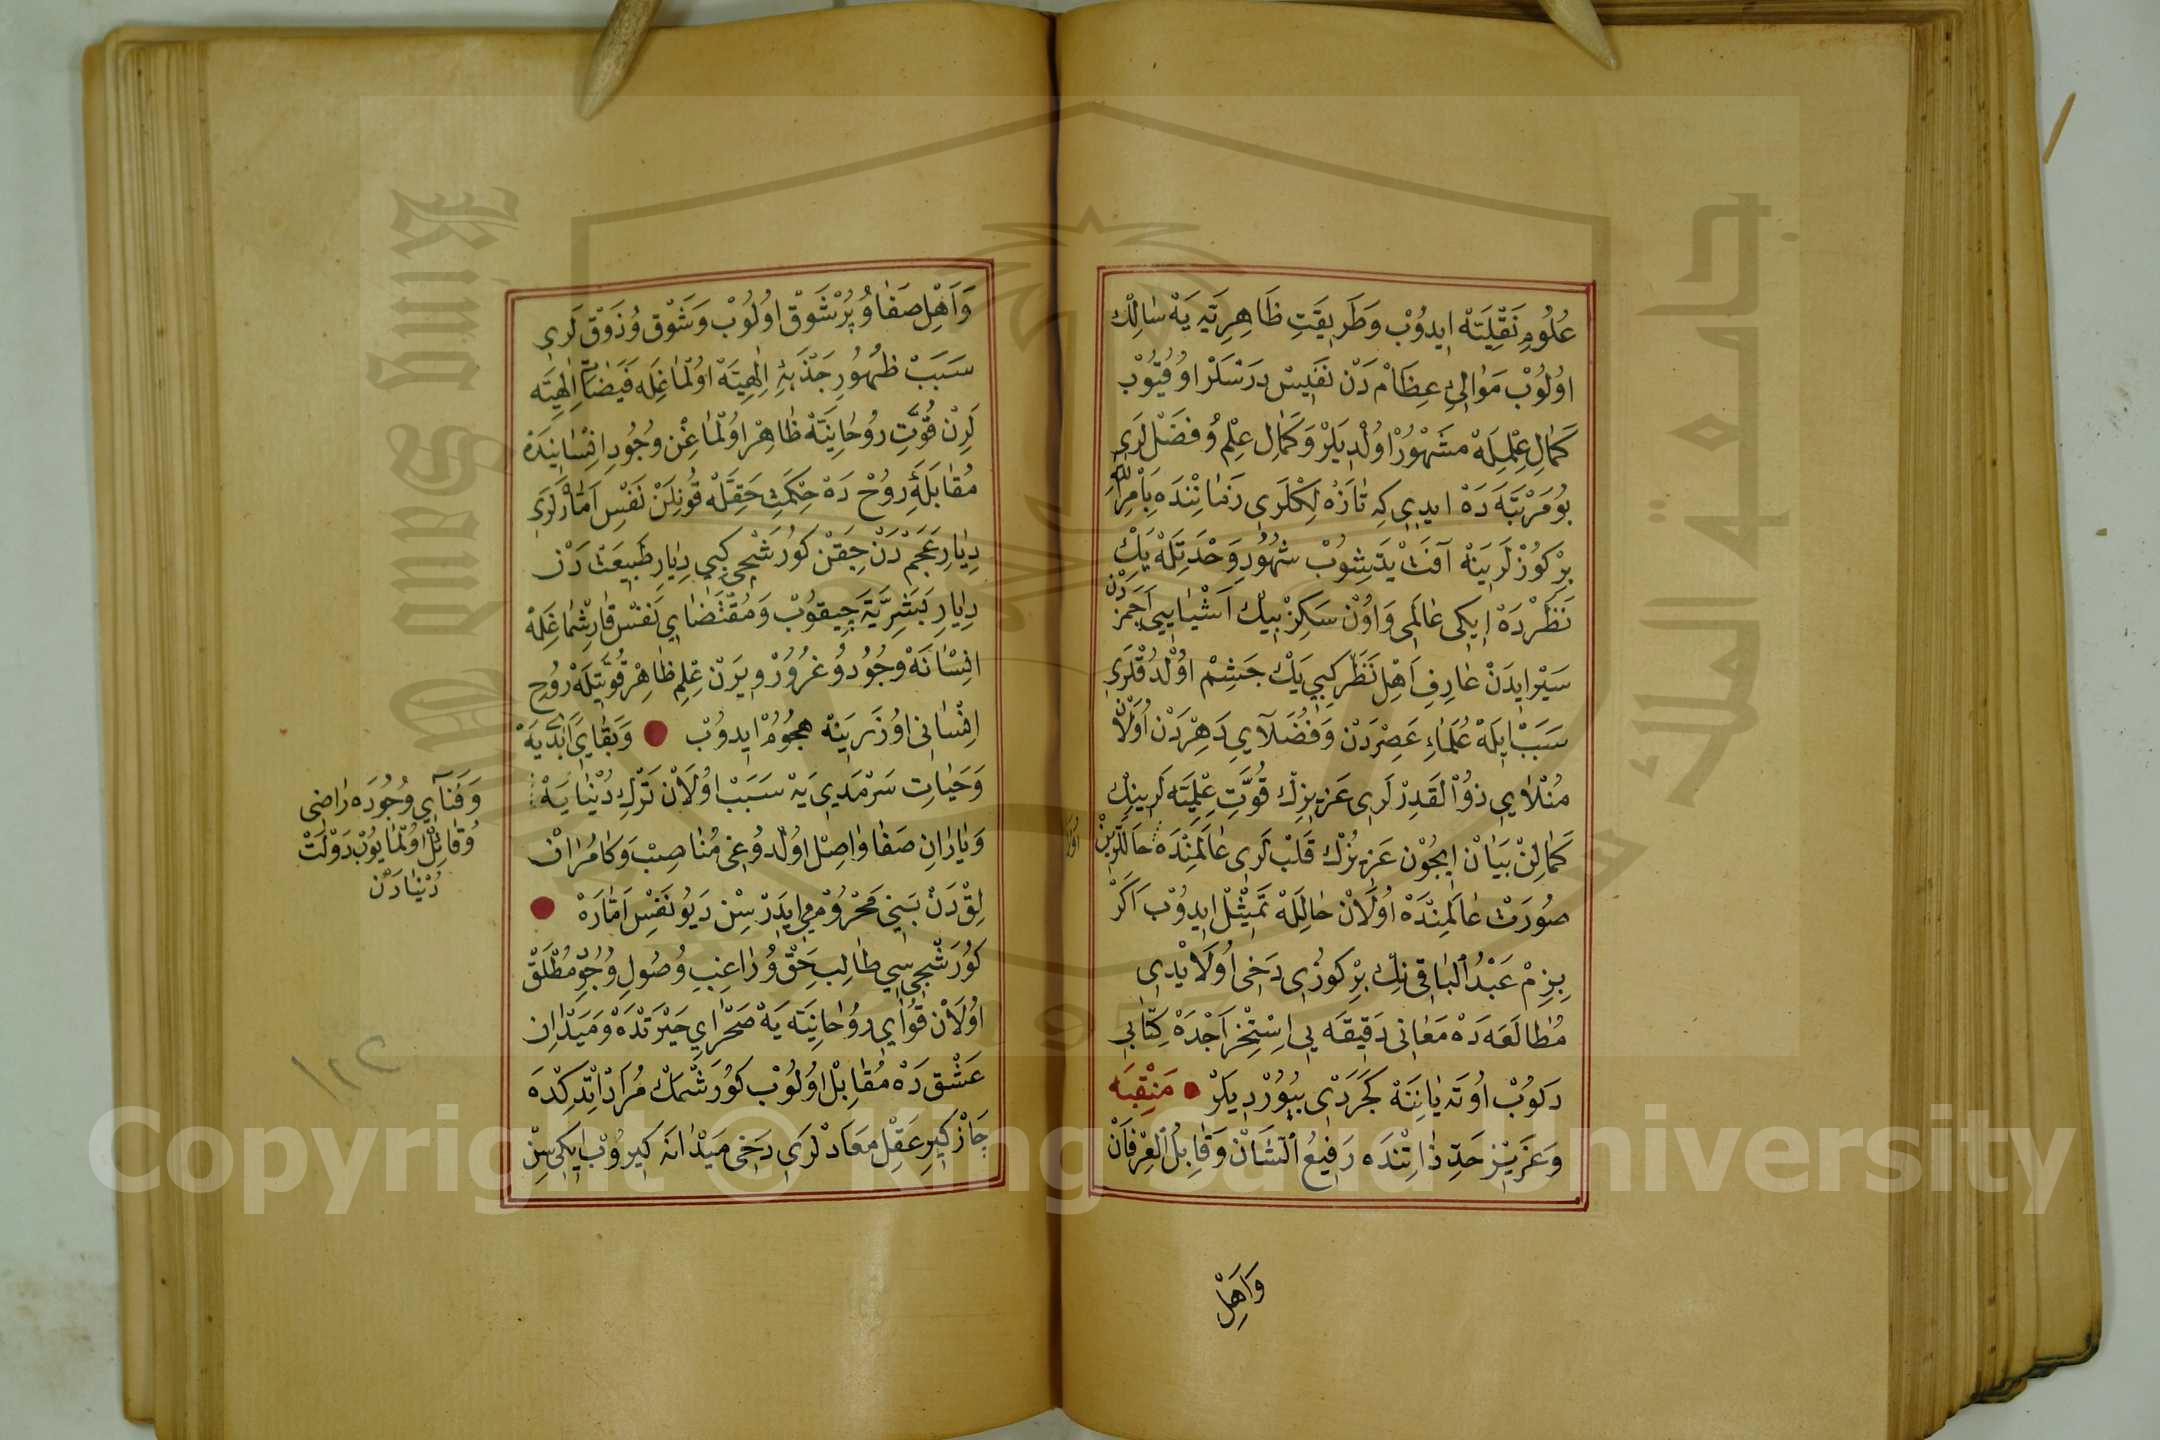 عُلُومِ نَقْلِيَّهْ ايدُوبْ وَطَرِيقَتِ ظَاهِرِيَّهِ يَهْ سَالِكْ
اوُلُوبْ مَوَالِئِ عِظَامْ دَنْ نَفِيسْ دَرْسْلَرْ اوُقُيُوبْ
كَمَالِ عِلْمِلَهْ مَشْهُورْ اوُلْدِيلَرْ وَكَمَالِ عِلْمُ وُ فَضْلْلَرِى
بُو مَرْتَبَهَ دَهْ ايدِى كِه تَازَهْ لِكْلَرِى زَمَانِنْدَه بِاَمْرِ اللّٰهِ
بِرْ كوُزْلَرِينَهْ آفَتْ يَتِشُوبْ شُهُودِ وَحْدَتِلَهْ يَكْ
نَظَرْدَهْ ايكِى عَالَمِى وَاوُنْ سَكِزْ بِيكْ اَشْيَايِى اَچَمَزْ دَنْ
سَيْر ايدَنْ عَارِفِ اَهْلِ نَظَرْ كِبِى يَكْ چَشِمْ اوُلْدُقْلَرِى
سَبَبْ ايلَهْ عُلَمَاءِ عَصِرْدَنْ وَفُضَلَآىِ دَهِرْدَنْ اوُلَانْ
مُنْلَاىِ ذوُ الْقَدِرْ لَرِى عَزِيزِكْ قُوَّتِ عِلْمِيَّه لَرِينِكْ
كَمَالِنْ بَيَانْ ايچُونْ عَزِيزُكْ قَلْبْ لَرِى عَالَمِنْدَهْ حَاللَّرِينْ
صُورَتْ عَالَمِنْدَهْ اوُلَانْ حَالِلَهْ تَمْثِيلْ ايدُوبْ اَكَرْ
بِزِمْ عَبْدُ الْبَاقِى نِكْ بِرْ كوُزِى دَخِى اوُلَايْدِى
مُطَالَعَه دَهْ مَعَانِى دَقِيقَه يِى اِسْتِخْرَاجْدَهْ كِتَابِى
دَلُوبْ اوُتَه يَانِنَهْ كَچَرْدِى بُيُورْدِيلَرْ ● مَنْقِبَه
وَعَزِيزْ حَدِّ ذَاتِنْدَه رَفِيعُ الشَّانْ وَقَابِلُ الْعِرْفَانْ
وَاَهْلِ
وَاَهْلِ صَفَا وُ پُرْ شَوْقْ اوُلُوبْ وَشَوْقْ وُ ذَوْقْ لَرِى
سَبَبْ ظُهُورِ جَذْبَهِٔ اِلٰهِيَّهْ اوُلْمَاغِلَه فَيَضَانِ اِلٰهِيَّه
لَرِنْ قُوَّتِ رُوحَانِيَّهْ ظَاهِرْ اوُلْمَاغِنْ وُجُودِ اِنْسَانِيدَهْ
مُقَابَلَهِٔ رُوحْ دَهْ حِكْمَتِ حَقِّلَهْ قُونِلَنْ نَفْسِ اَمَّارَلَرِى
دِيَارِ عَجَمْ دَنْ چِقَنْ كوُرَشْجِى كِبِى دِيَارِ طَبِيعَتْ دَنْ
دِيَارِ بَشَرِيَّهَ چِيقوُبْ وَمُقْتَضَاىِ نَفْسْ قَارِشْمَاغَلَهْ
انْسَانَهْ وُجُودُ وُ غُرُورْ وِيرَنْ عِلْمِ ظَاهِرْ قُوَّتِلَهْ رُوحِ
اِنْسَانِى اوُزَرِينَهْ هُجُومْ ايدُوبْ ● وَبَقَاىِ اَبَدِىيَهْ
وَحَيَاتِ سَرْمَدِى يَهْ سَبَبْ اوُلَانْ تَرْكِ دُنْيَا يَهْ
وَيَارَانِ صَفَا وَاصِلْ اوُلْدُوغِى مُنَاصِبْ وَكَامُرَانْ
لِقْ دَنْ بَنِى مَحْرُومْمِى ايدَرْ سِنْ دَيُو نَفْسِ اَمَّارَهْ ●
كوُرَشْجِيسِى طَالِبِ حَقْ وُ رَاغِبِ وُصُولِ وُجُودِ مُطْلَقْ
اوُلَانْ قُوَاىِ رُوحَانِيَّه يَهْ صَحْرَاىِ حَيْرَتْدَهْ وَمَيْدَانِ
عَشْقْ دَهْ مُقَابِلْ اوُلُوبْ كوُرَشْمَكْ مُرَادْ اِتْدِكِنْدَه
چَارْ كِيرِ عَقِلْ مَعَادْلَرِى دَخِى مَيْدَانَه كِيرُوبْ اِيكِيسِنْ
وَفَنَآىِ وُجُودَه رَاضِى
وُقَائِلْ اوُلْمَايُوبْ دَوْلَتْ
دُنْيَادَنْ